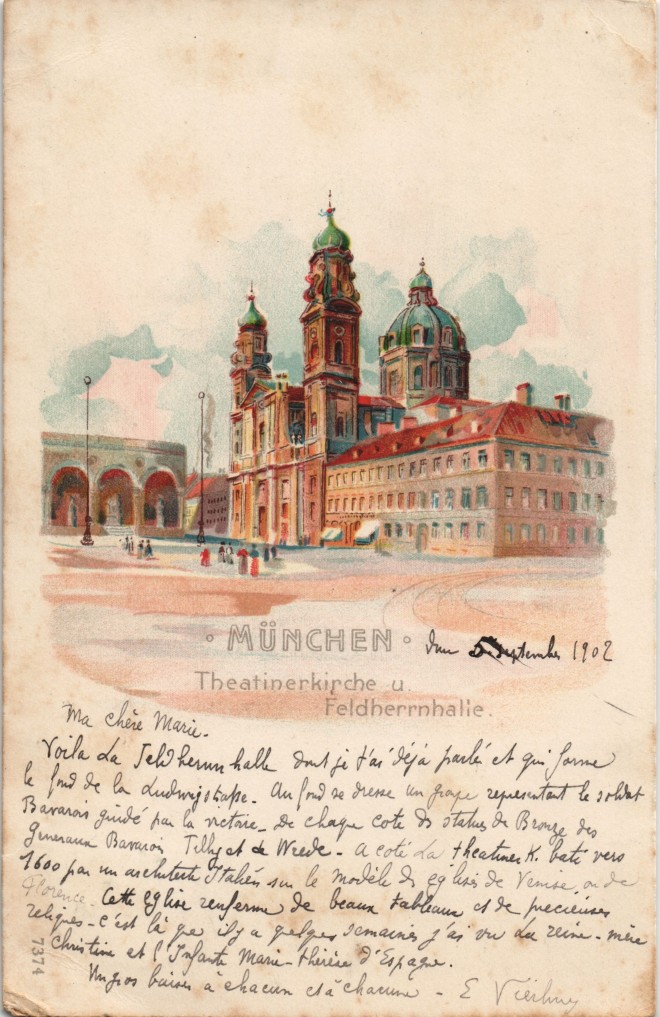 • MÜNCHEN •
den 5. September 1902
Theatinerkirche u.
Feldherrnhalle.
Ma chère Marie.
Voila La Feldherrnhalle dont je t'ai déjà parlé et qui forme
le fond de la Ludwigstraße. Au fond se dresse un grupe representant le soldat
Bavarois guidé par la victoire. De chaque coté ds statues de Bronze des
Generaux Bavarois Tilly et de Wrede. A coté La theatiner K. bati vers
1600 par un architecte Italien sur le modèle ds eglises de Venise, ou de
Florence. Cette Eglise renferme de beaux tableaux et de precieuses
reliques. C'est là que il y a quelques semaines j'ai vu la reine-mère
Christine et l'Infante Marie-thérèse d'Espagne.
Un gros baiser à chacun et à chacune – E
7374